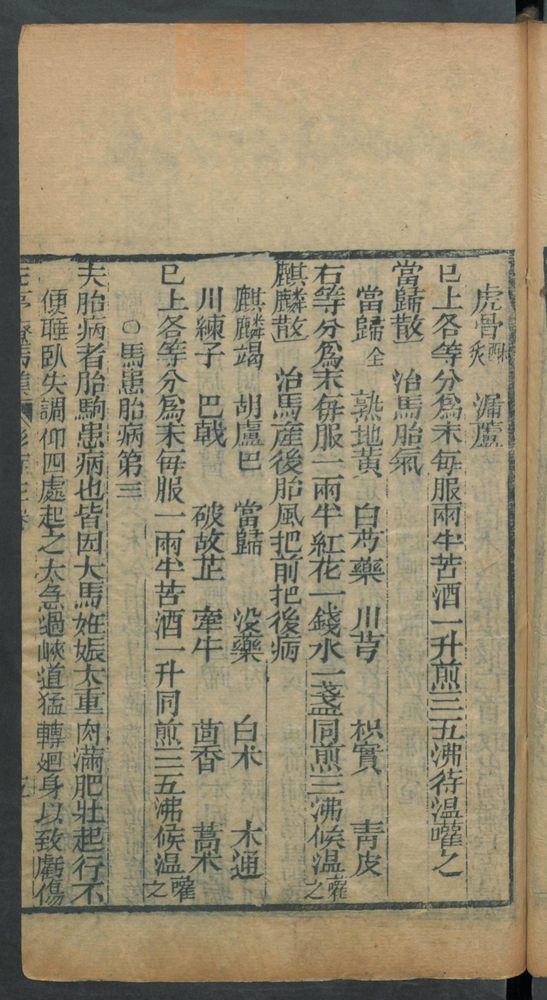 虎骨酥炙　漏蘆
已上各等分爲末每服兩半苦酒一升煎三五沸待温嚾之
當歸散　治馬胎氣
當歸全　熟地黃　白芍藥　川芎　枳實　青皮
右等分爲末每服一兩半紅花一錢水一盞同煎三沸候温嚾之
麒麟散　治馬産後胎風把前把後病
麒麟竭　胡盧巴　當歸　没藥　白朮　木通
川練子　巴戟　破故芷　牽牛　茴香　藁本
已上各等分爲末每服一兩半苦酒一升同煎三五沸候温嚾之
○馬患胎病第三
夫胎病者胎駒患病也皆因大馬姙娠太重肉滿肥壯起行不
便睡臥失調仰四處起之太急過峽道猛轉廻身以致虧傷